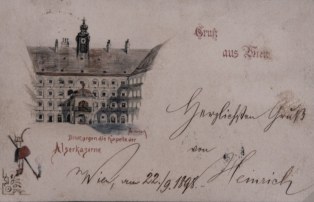 Gruß
aus Wien
Herzlichsten Gruß
von
Heinrich
Blick gegen die Kapelle der
Alserkaserne
Wien, am 22/9 1898.